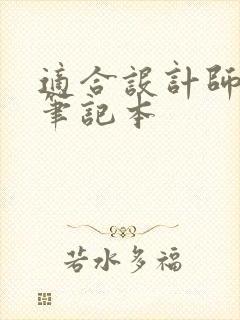 適合設計師
筆記本
若水多福